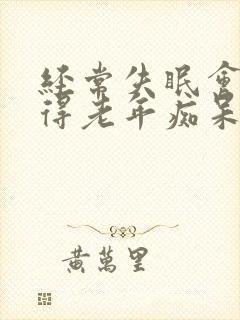 經常失眠會
得老年痴呆
黃萬里